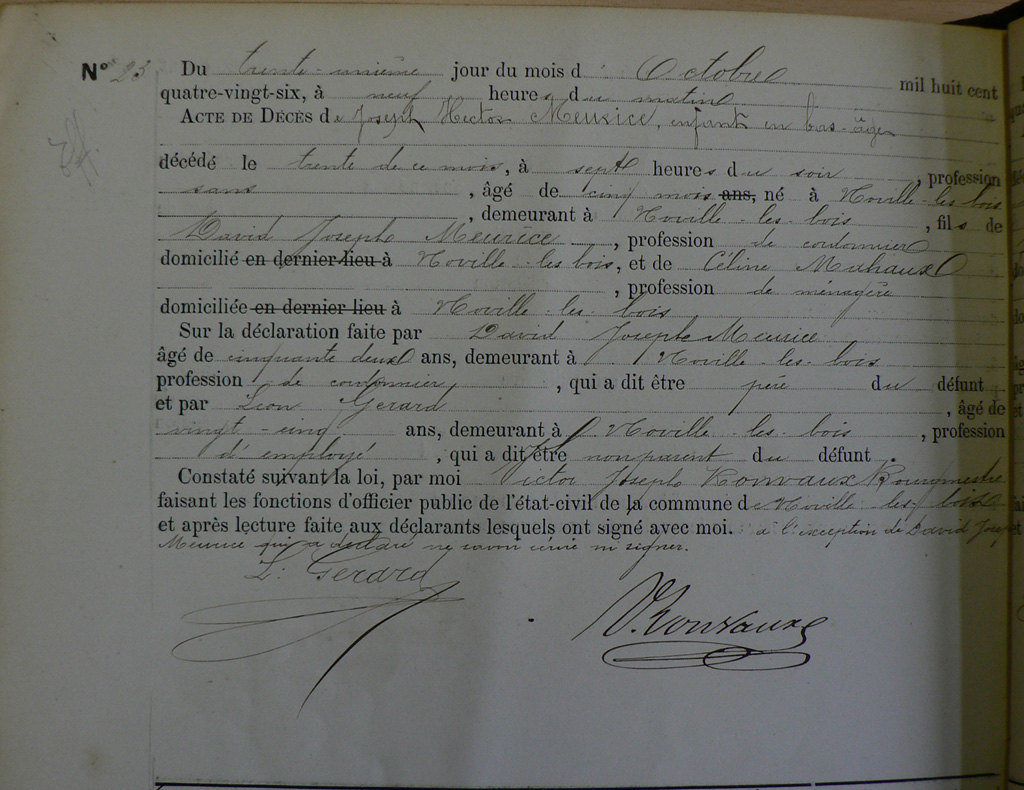 N° 23 Du trente-unième jour du mois d' Octobre mil huit cent
quatre-vingt-six, à neuf heures du matin
ACTE DE DÉCÈS de Joseph Hector Meurice, enfant en bas-âge
décédé le trente de ce mois, à sept heures du soir, profession
sans, âgé de cinq mois ans, né à Noville-les-bois
, demeurant à Noville-les-bois, fils de
David Joseph Meurice, profession de cordonnier
domicilié en dernier lieu à Noville-les-bois, et de Céline Mahaux
, profession de ménagère
domiciliée en dernier lieu à Noville-les-bois
Sur la déclaration faite par David Joseph Meurice
âgé de cinquante deux ans, demeurant à Noville-les-bois
profession de cordonnier, qui a dit être père du défunt
et par Léon Gerard, âgé de
vingt-cinq ans, demeurant à Noville-les-bois, profession
d'employé, qui a dit être non parent du défunt.
Constaté suivant la loi, par moi Victor Joseph Ronvaux Bourgmestre
faisant les fonctions d'officier public de l'état-civil de la commune de Noville-les-bois
et après lecture faite aux déclarants lesquels ont signé avec moi. à l'exception de David Joseph
Meurice qui a déclaré ne savoir écrire ni signer.
L. Gerard
V. Ronvaux